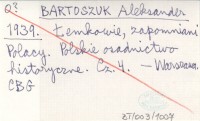 Q? BARTOSZUK Aleksander
1939. Łemkowie, zapomniani
Polacy. Polskie osadnictwo
historyczne. Cz. 4. – Warszawa.
CBG
ZT/003/1007